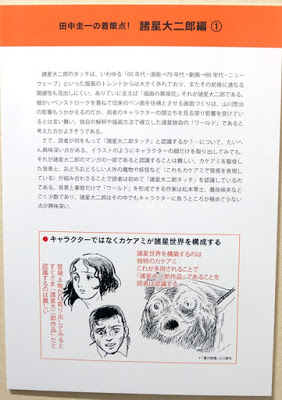 田中圭一の着眼点! 諸星大二郎編 ①
諸星大二郎のタッチは、いわゆる「60年代・漫画→70年代・劇画→80年代・ニュー
ウェーブ」といった描画のトレンドからは大きく外れており、またその前後に連なる
関連性も見出しにくい。ありていに言えば「描画の異端児」、それが諸星大二郎である。
細かいペンストロークを重ねて旧来のペン画を彷彿とさせる画面づくりは、山川惣治
の影響もうかがえるのだが、両者のキャラクターの顔立ちを見る限り影響を受けてい
るとは言い難い。独自の解釈や描画方法で確立した諸星独自の「ワールド」であると
考えた方がよさそうである。
さて、読者が何をもって「諸星大二郎タッチ」を認識するか?…について、たいへ
ん興味深い点がある。イラストのようにキャラクターの顔だけを取り出してみても、
それが諸星大二郎のマンガの一部であると認識することは難しい。カケアミを駆使し
た背景と、おどろおどろしい人外の魔物や妖怪など(これもカケアミで質感を表現し
ている)が組み合わさることで読者は初めて「諸星大二郎タッチ」を認識しているの
である。背景と筆致だけで「ワールド」を形成できる作家は松本零士、魔夜峰央など
ごく少数であり、諸星大二郎はその中でもキャラクターに負うところが極めて少ない
点が興味深い。
●キャラクターではなくカケアミが諸星世界を構成する
登場人物だけ取り出してみると
すぐさま「諸星大二郎作品」だと
認識することは難しい
諸星世界を構築するのは
独特のカケアミ
これが多用されることで
「諸星大二郎作品」であることを
読者は認識する